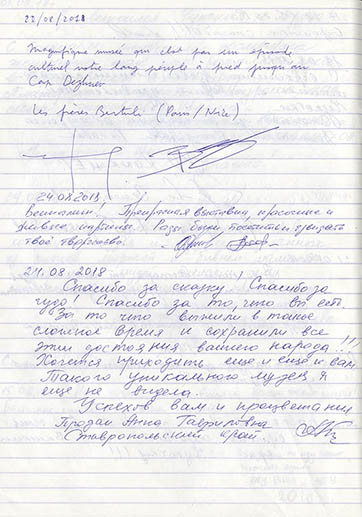 22/08/2018
Magnifique musée qui clot par un épisode
culturel notre long périple à pied jusqu'au
Cap Dezhnev
Les frères Bertuli (Paris/Nice)
24.08.2018
Прекрасная выставка, красочные и
живые картины. Рады были посетить и
твоё творчество.
24.08.2018
Спасибо за сказку! Спасибо за
чудо! Спасибо за то, что Вы есть.
За то что выжили в такое
сложное время и сохранили все
эти достояния вашего народа!!!
Хочется приходить еще и еще к вам
Такого уникального музея я
еще не видела.
Успехов вам и процветания
Анна Гавриловна
Ставропольский край.